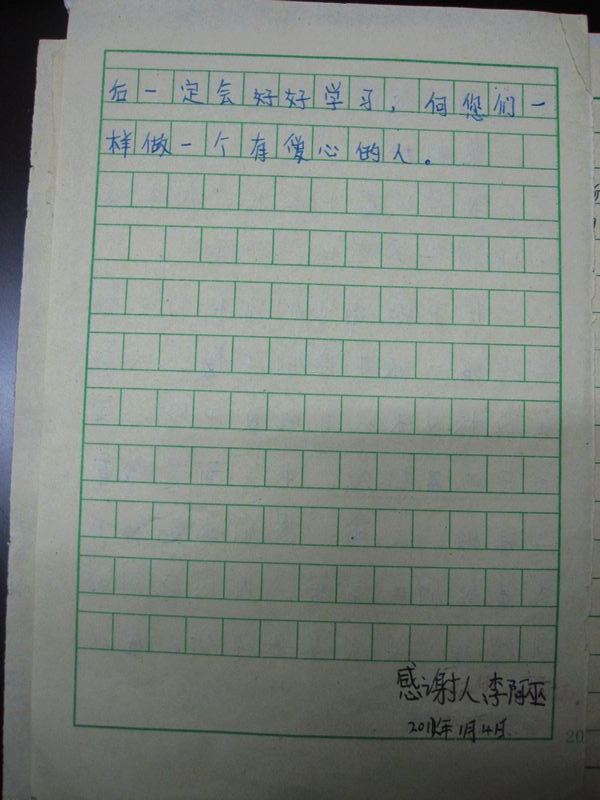 后一定会好好学习，向您们一
样做一个有爱心的人。
感谢人、李阿巫
年1月4日
20